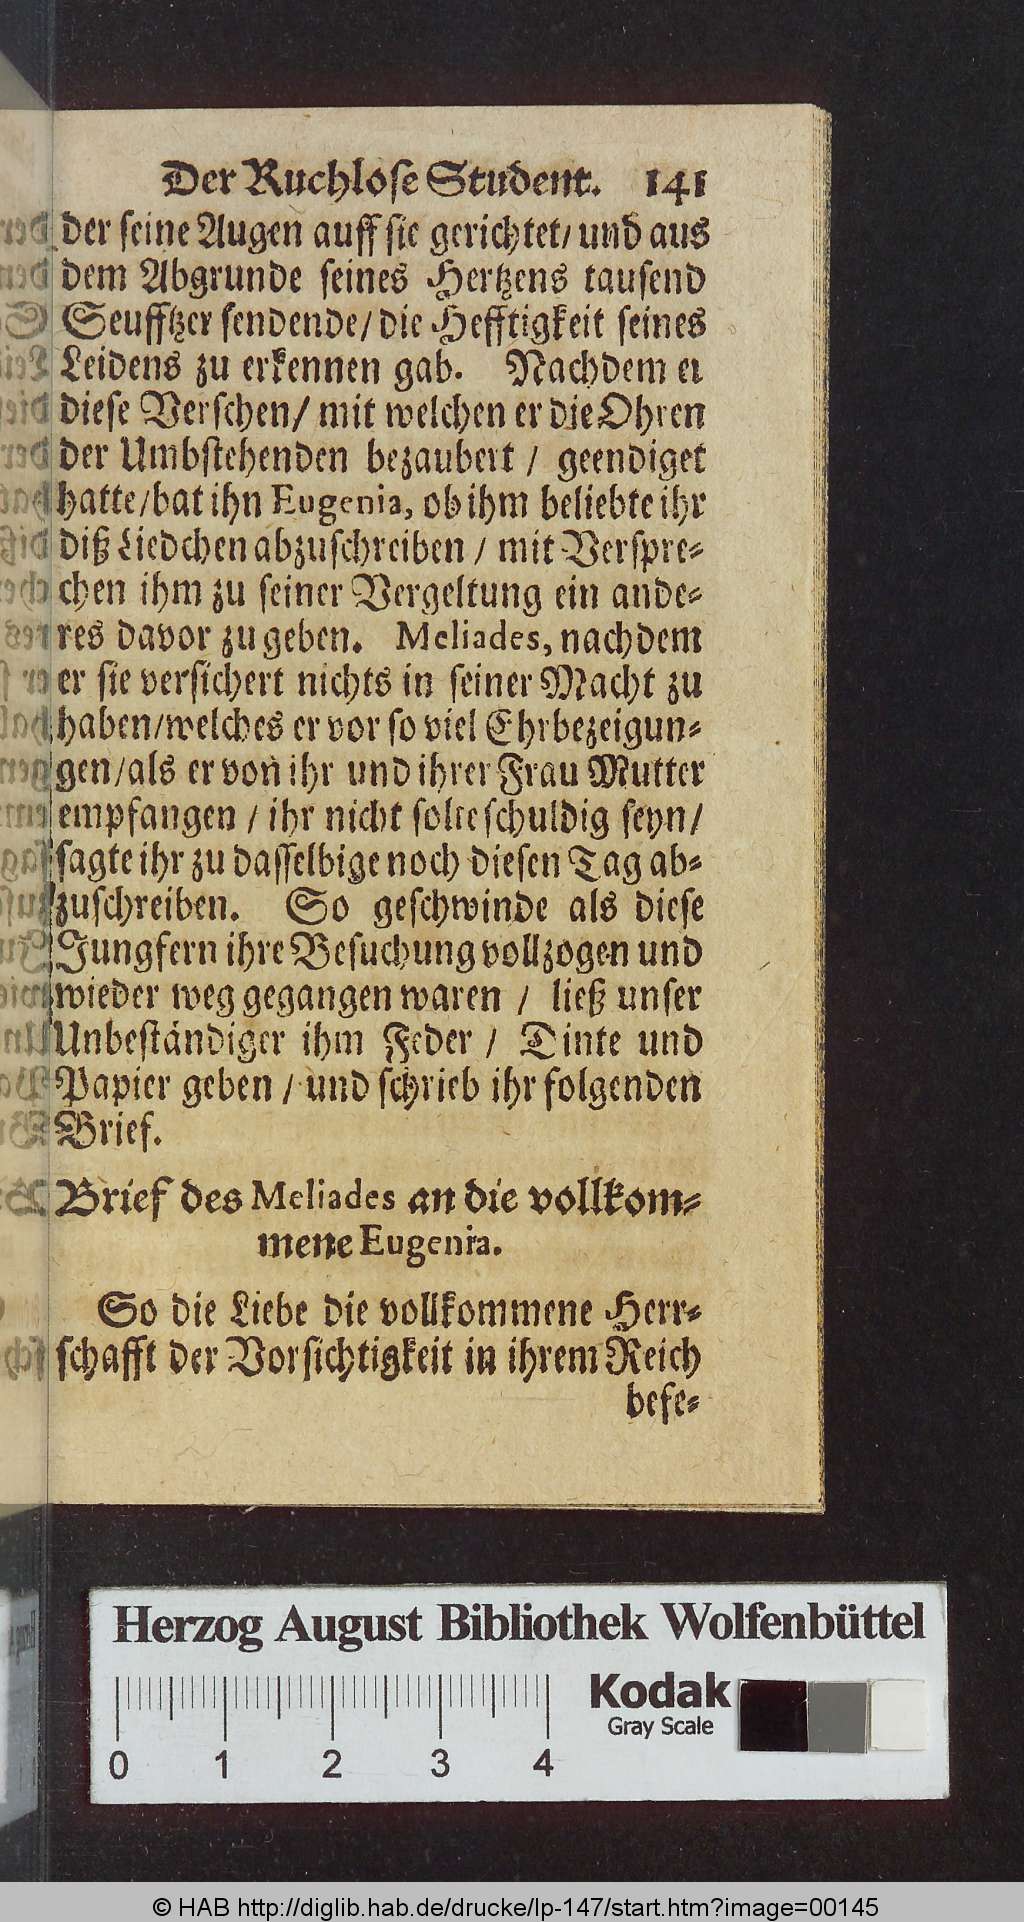 Der Ruchlose Student. 141
der seine Augen auff sie gerichtet/ und aus
dem Abgrunde seines Hertzens tausend
Seufftzer sendende/ die Hefftigkeit seines
Leidens zu erkennen gab. Nachdem er
diese Verschen/ mit welchen er die Ohren
der Umbstehenden bezaubert / geendiget
hatte/ bat ihn Eugenia, ob ihm beliebte ihr
diß Liedchen abzuschreiben / mit Verspre-
chen ihm zu seiner Vergeltung ein ande-
res davor zu geben. Meliades, nachdem
er sie versichert nichts in seiner Macht zu
haben/ welches er vor so viel Ehrbezeigun-
gen/ als er von ihr und ihrer Frau Mutter
empfangen / ihr nicht solte schuldig seyn/
sagte ihr zu dasselbige noch diesen Tag ab-
zuschreiben. So geschwinde als diese
Jungfern ihre Besuchung vollzogen und
wieder weg gegangen waren / ließ unser
Unbeständiger ihm Feder / Dinte und
Papier geben / und schrieb ihr folgenden
Brief.
Brief des Meliades an die vollkom-
mene Eugenia.
So die Liebe die vollkommene Herr-
schafft der Vorsichtigkeit in ihrem Reich
befe-
Herzog August Bibliothek Wolfenbüttel
Kodak
Gray Scale
0 1 2 3 4
© HAB http://diglib.hab.de/drucke/lp-147/start.htm?image=00145